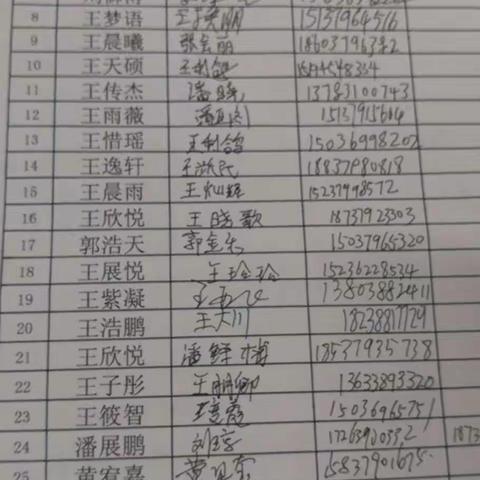 8 王梦语 15137964516
9 王晨曦 张会丽 18603796382
10 王天硕 王利鸽
11 王传杰 潘晓 13783100743
12 王雨薇 15137915604
13 王惜瑶 王利鸽 15036998202
14 王逸轩 王淑民 18837980818
15 王晨雨 王灿辉 15237998572
16 王欣悦 王晓歌 18737923303
17 郭浩天 郭金乐 15037965320
18 王展悦 王玲玲 15236228534
19 王紫凝 13803882411
20 王浩鹏 王大川 18238817729
21 王欣悦 潘锋梅 18537935738
22 王子彤 王朋卿 13633893320
23 王筱智 15036965751
24 潘展鹏 17263900332 1873
25 黄宥嘉 15837901675